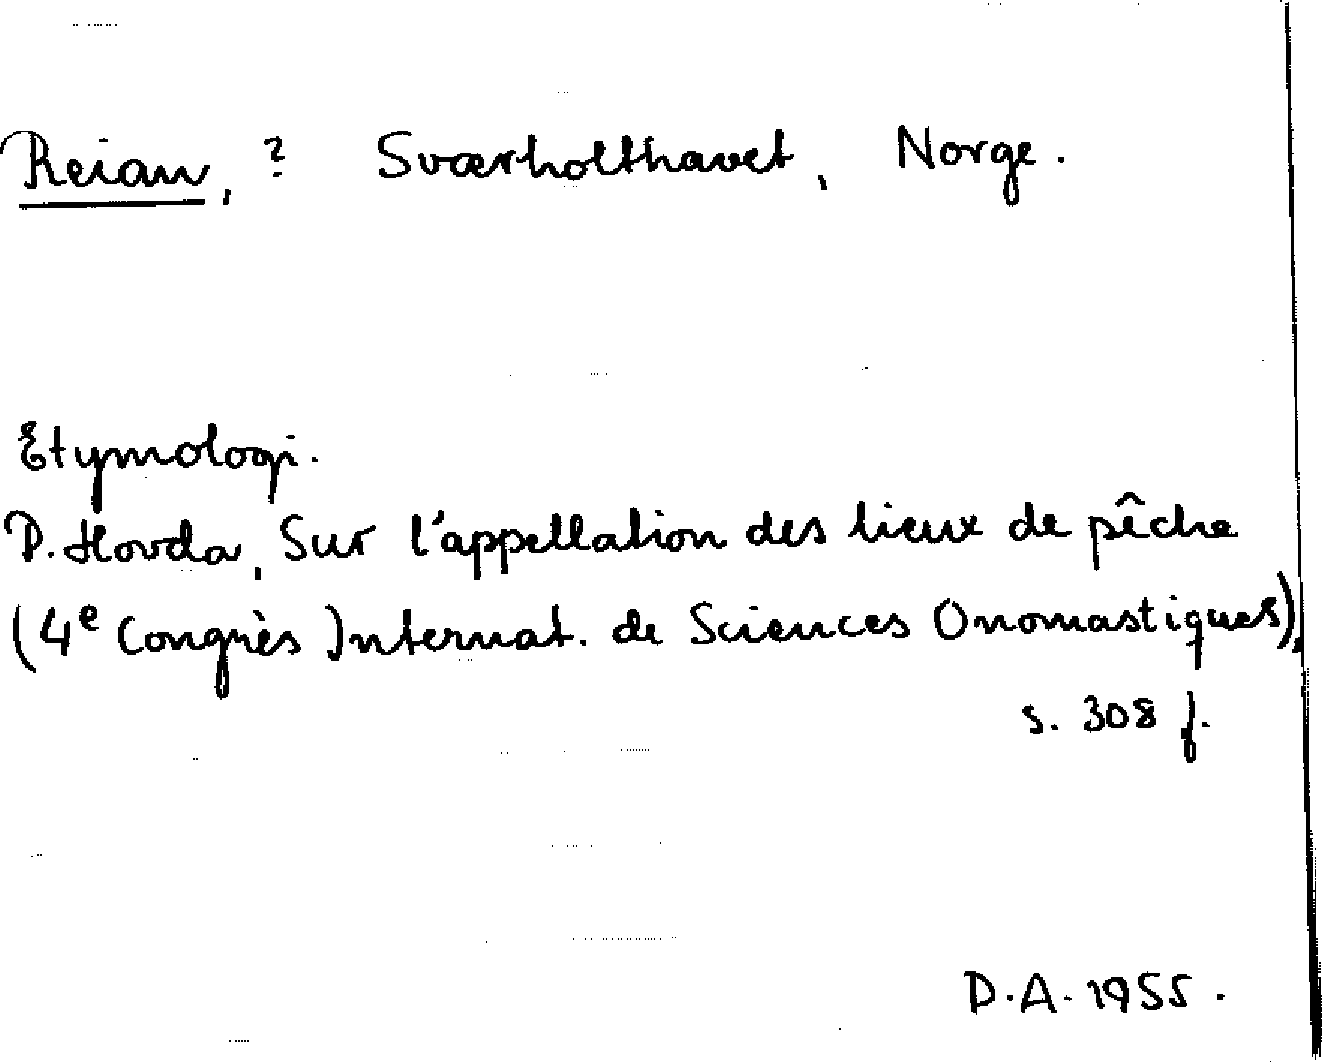 Reian, ? Sværholthavet, Norge.
Etymologi.
P. Hovda, Sur l'appellation des lieux de pêche
(4e Congrès Internat. de Sciences Onomastiques),
s. 308 f.
D.A. 1955.